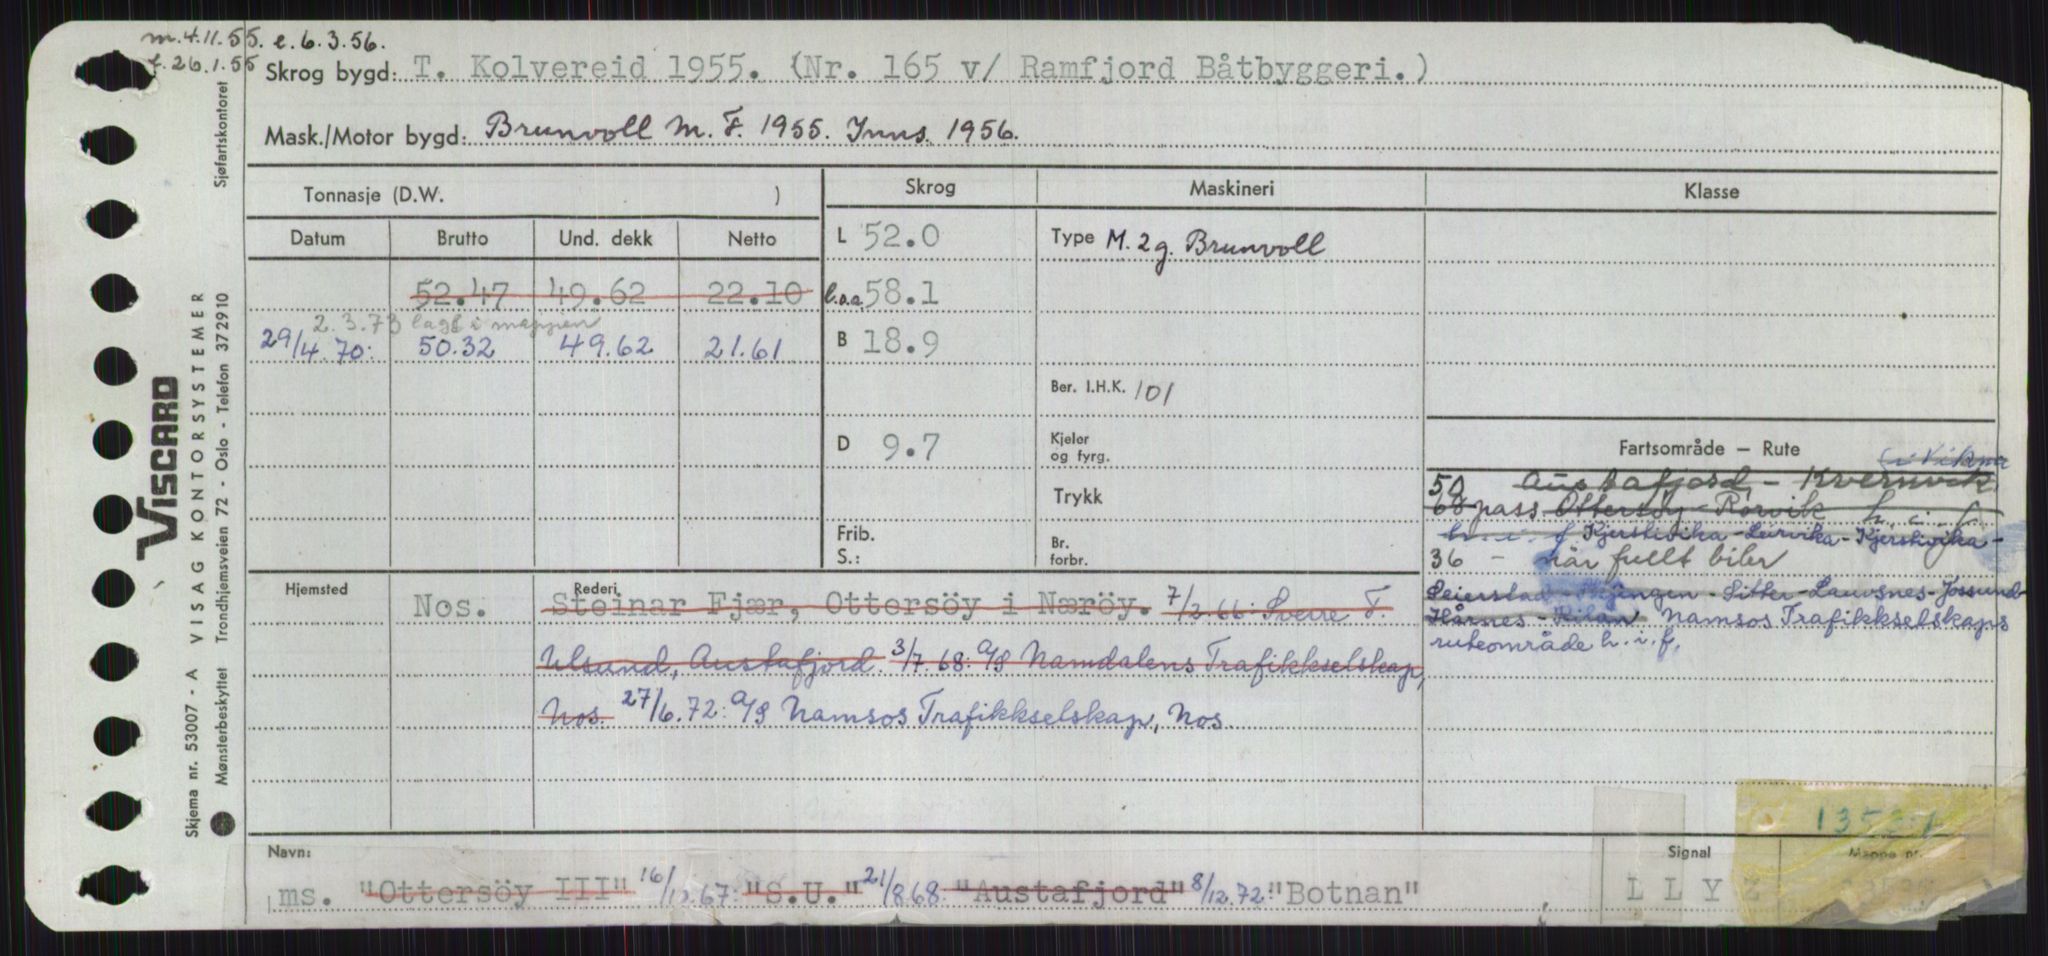 m. 4.11.55. e. 6.3.56.
f. 26.1.55
Skrog bygd: T. Kolvereid 1955. (Nr. 165 v/ Ramfjord Båtbyggeri.)
Mask./Motor bygd: Brunvoll M. F. 1955. Inns. 1956.
Tonnasje (D.W. )
Skrog
Maskineri
Klasse
Datum Brutto Und. dekk Netto
L 52.0
Type M. 2 g. Brunvoll
52.47 49.62 22.10
l.o.a. 58.1
2.3.73 lagt i mappen
29/4.70: 50.32 49.62 21.61
B 18.9
Ber. I.H.K. 101
D 9.7
Kjeler
og fyrg.
Trykk
Frib.
S.:
Br.
forbr.
Fartsområde — Rute
(i Vikna
50 Austafjord - Kvernvik
68 pass Ottersöy - Rørvik h. i. f.
h. i. f. Kjerstivika - Leirvika - Kjerstivika -
36 - når fullt biler
Seierstad - - Sitter - Lauvsnes - Jøssund
Hårnes - Namsos Trafikkselskaps
ruteområde h. i. f.
Hjemsted
Nos.
Rederi
Steinar Fjær, Ottersöy i Næröy. 7/2.66: Sverre F.
Ulsund, Austafjord. 3/7.68: A/S Namdalens Trafikkselskap,
Nos. 27/6.72: A/S Namsos Trafikkselskap, Nos.
Navn:
ms. "Ottersöy III" 16/12.67: "S.U." 21/8 68: "Austafjord" 8/12.72: "Botnan"
Signal
L L Y Z
Mappe nr.
VISCARD
VISAG KONTORSYSTEMER
Skjema nr. 53007 - A
Mønsterbeskyttet Trondhjemsveien 72 - Oslo - Telefon 372910 Sjøfartskontoret